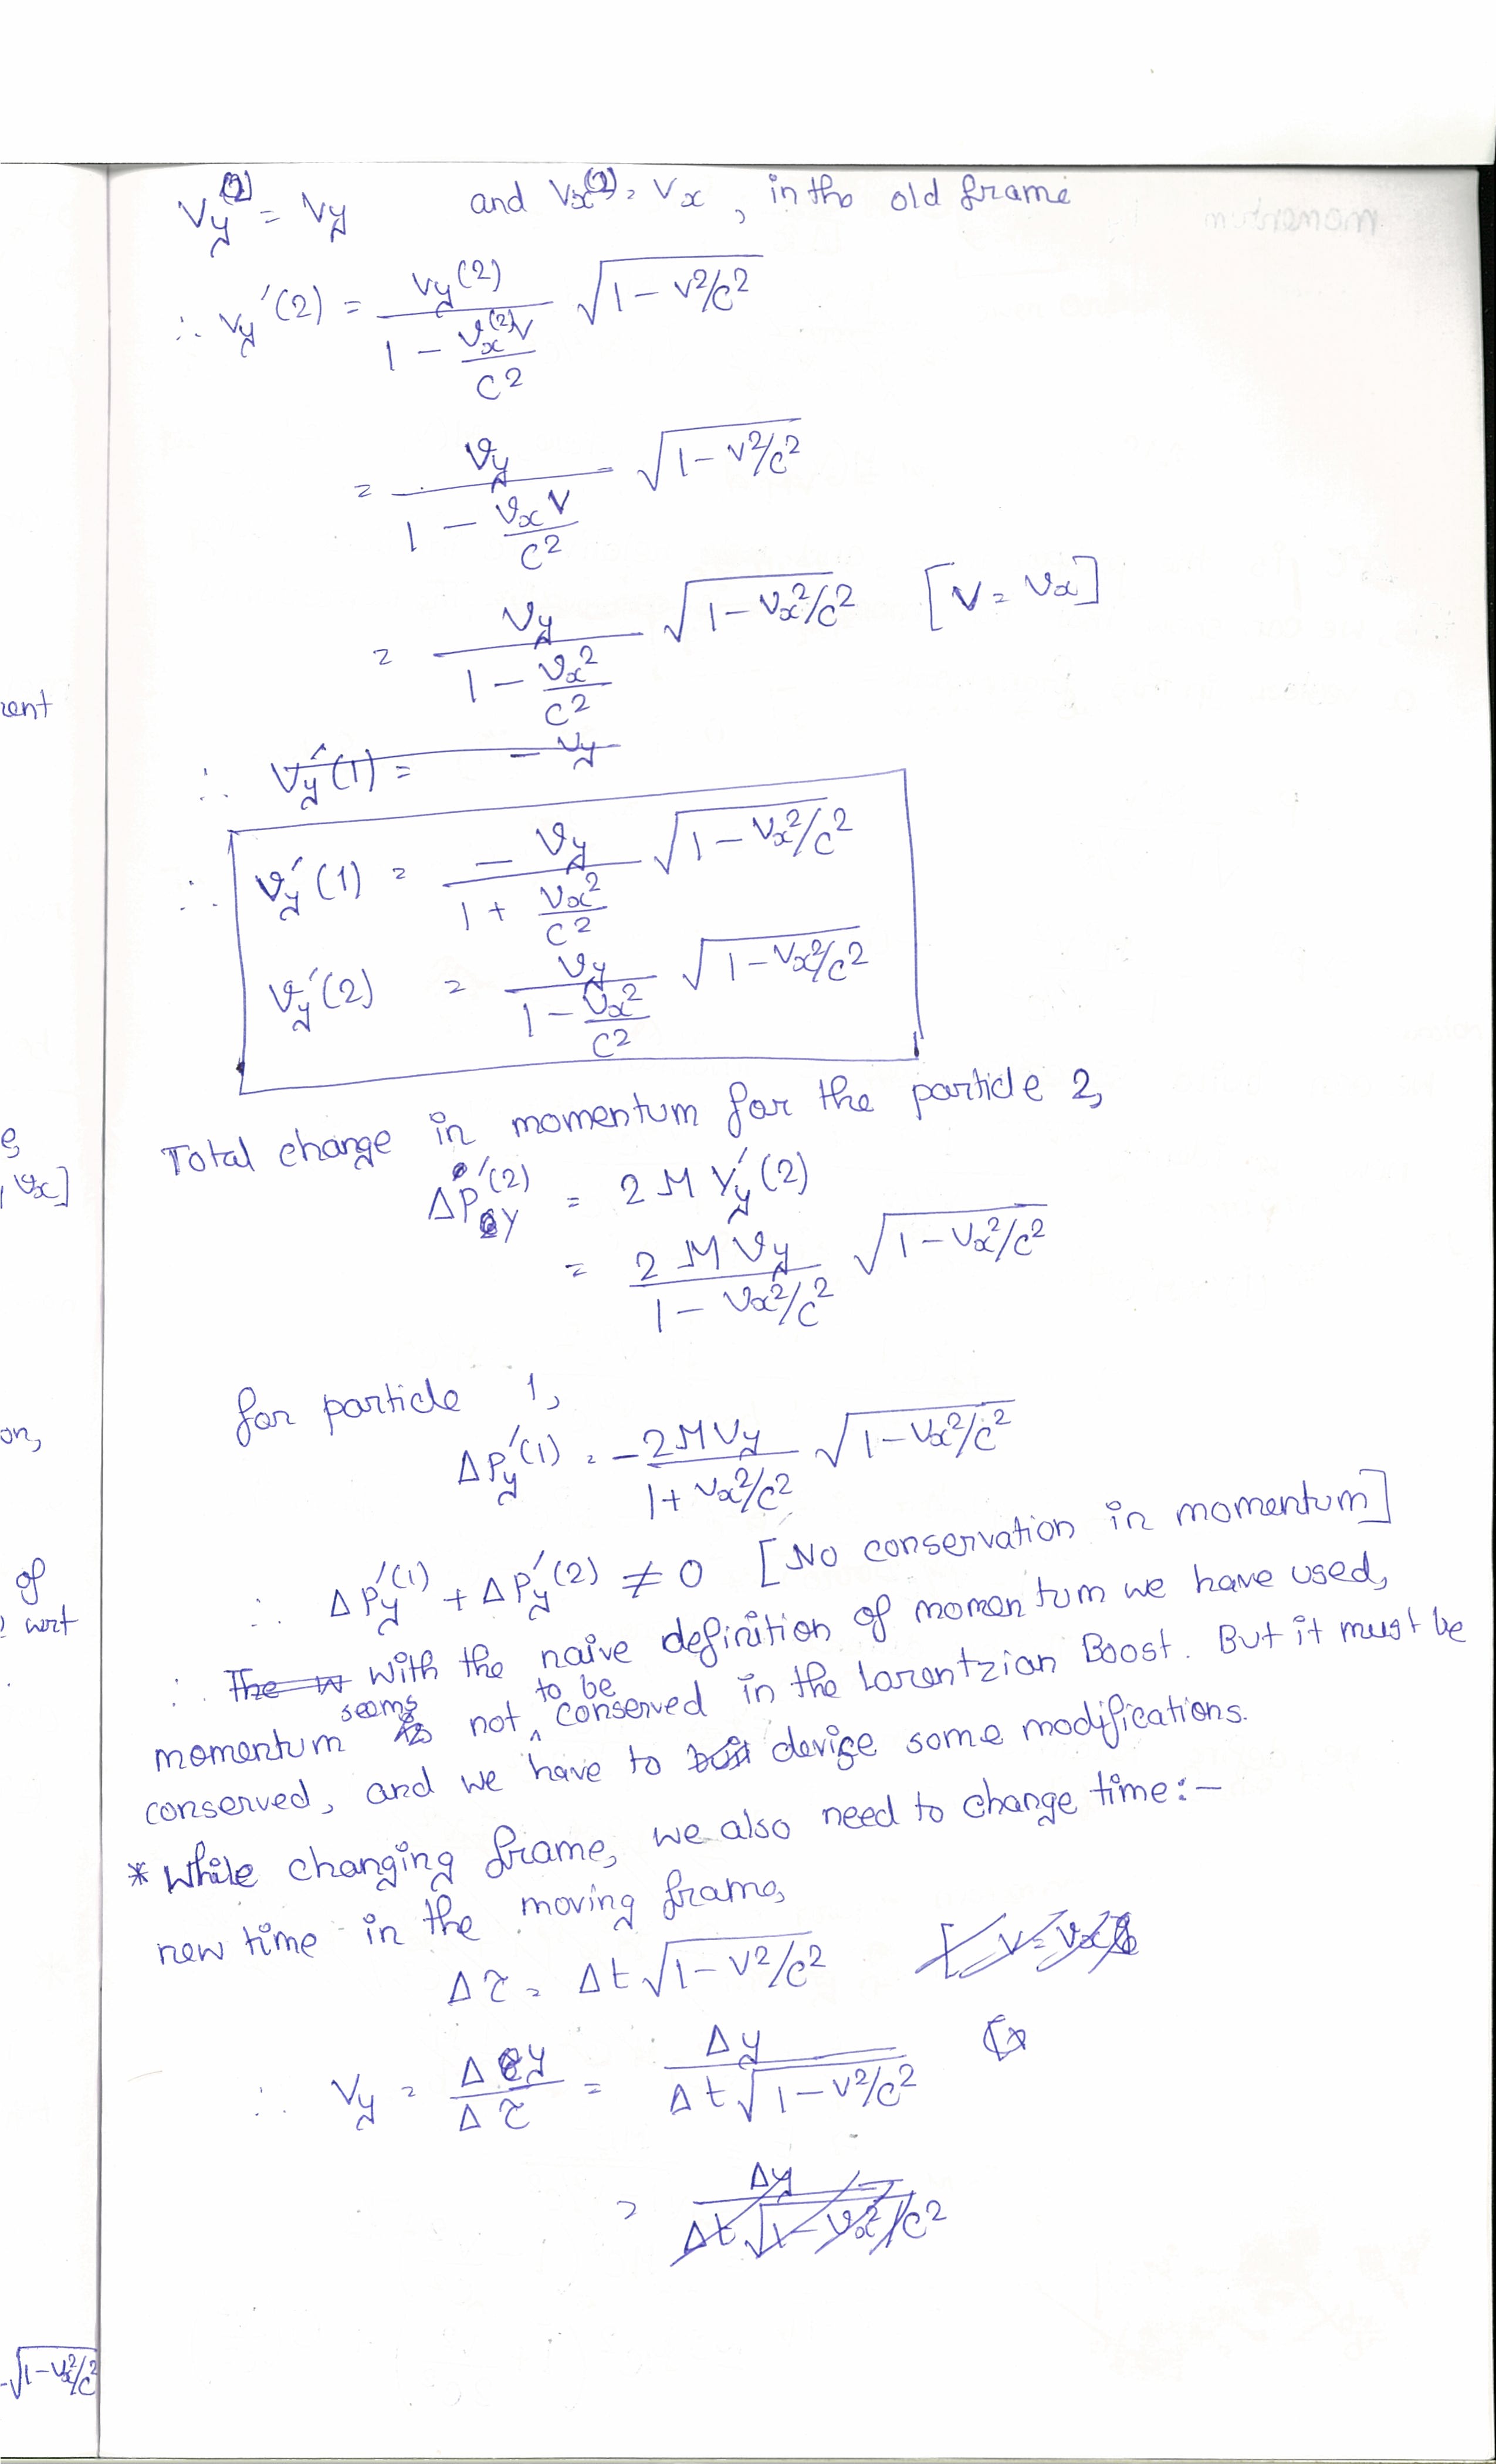 Vy(2) = Vy and Vx(2) = Vx, in the old frame
∴ Vy'(2) = Vy(2) / (1 − Vx(2)V/C²) √(1 − V²/C²)
= Vy / (1 − VxV/C²) √(1 − V²/C²)
= Vy / (1 − Vx²/C²) √(1 − Vx²/C²) [V = Vx]
rent
∴ Vy'(1) = − Vy
∴ Vy'(1) = − Vy / (1 + Vx²/C²) √(1 − Vx²/C²)
Vy'(2) = Vy / (1 − Vx²/C²) √(1 − Vx²/C²)
Total change in momentum for the particle 2,
Vx]
ΔPy'(2) = 2 M Vy'(2)
= 2 M Vy / (1 − Vx²/C²) √(1 − Vx²/C²)
for particle 1,
on,
ΔPy'(1) = −2 M Vy / (1 + Vx²/C²) √(1 − Vx²/C²)
∴ ΔPy'(1) + ΔPy'(2) ≠ 0 [No conservation in momentum]
of
wrt
∴ The with the naive definition of momentum we have used,
momentum seems not to be conserved in the Lorentzian Boost. But it must be
conserved, and we have to devise some modifications.
* While changing frame, we also need to change time:−
new time in the moving frame,
Δτ = Δt √(1 − V²/C²)
∴ Vy = Δy / Δτ = Δy / (Δt √(1 − V²/C²))
= Δy / (Δt √(1 − Vx²/C²))
√(1 − Vx²/C²)